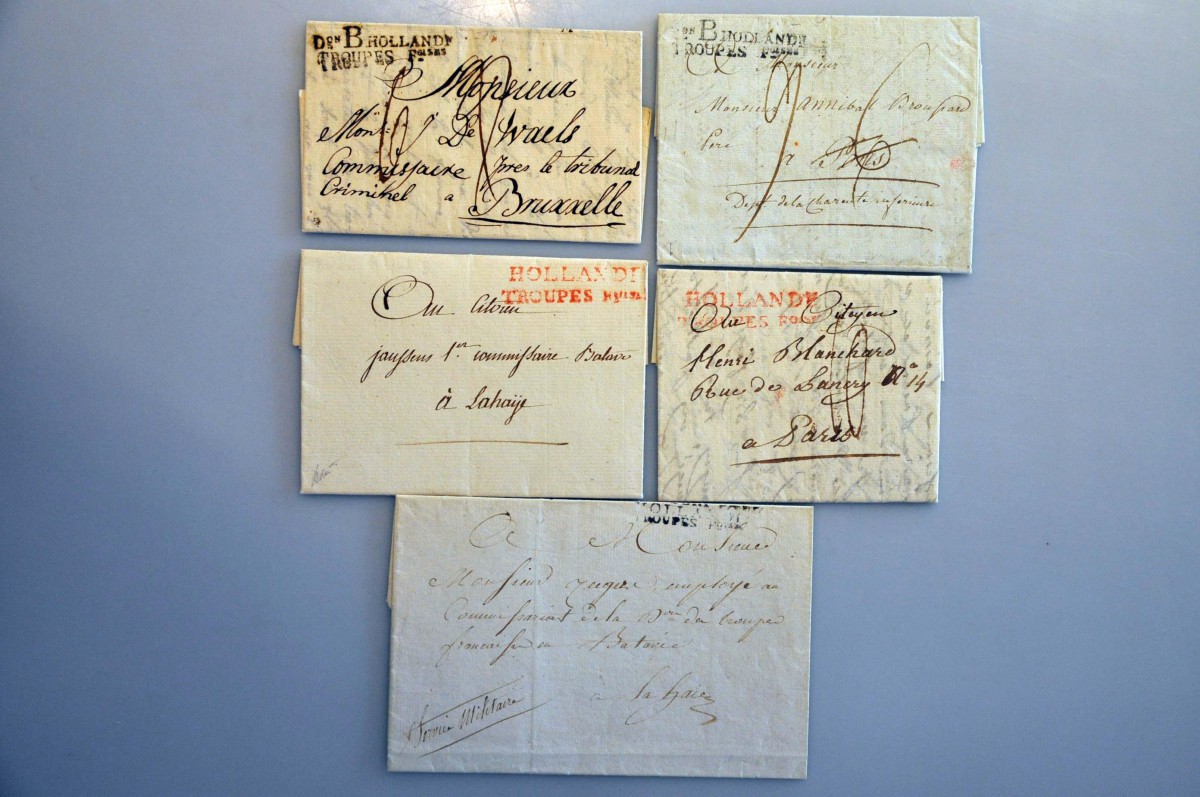 Dᵒⁿ B HOLLANDE
TROUPES Fᵒⁱˢᵉˢ
Monsieux
De Waels
Commissaire près le tribunal
Criminel a
Bruxxelle
B HOLLANDE
TROUPES
A Monsieur
Monsieur Annibal Broussard
Père
a
Dept de la Charente inférieure
HOLLANDE
TROUPES
Au Citoien
janssens 1er commissaire Batave
à Lahaije
HOLLANDE
TROUPES
Au Citoyen
Henri Blanchard
Rue de Lancry No 14
a Paris
TROUPES
A Monsieur
Monsieur employé au
Commissariat de la Don des troupes
francaises en Batavie
à la haie
Service Militaire